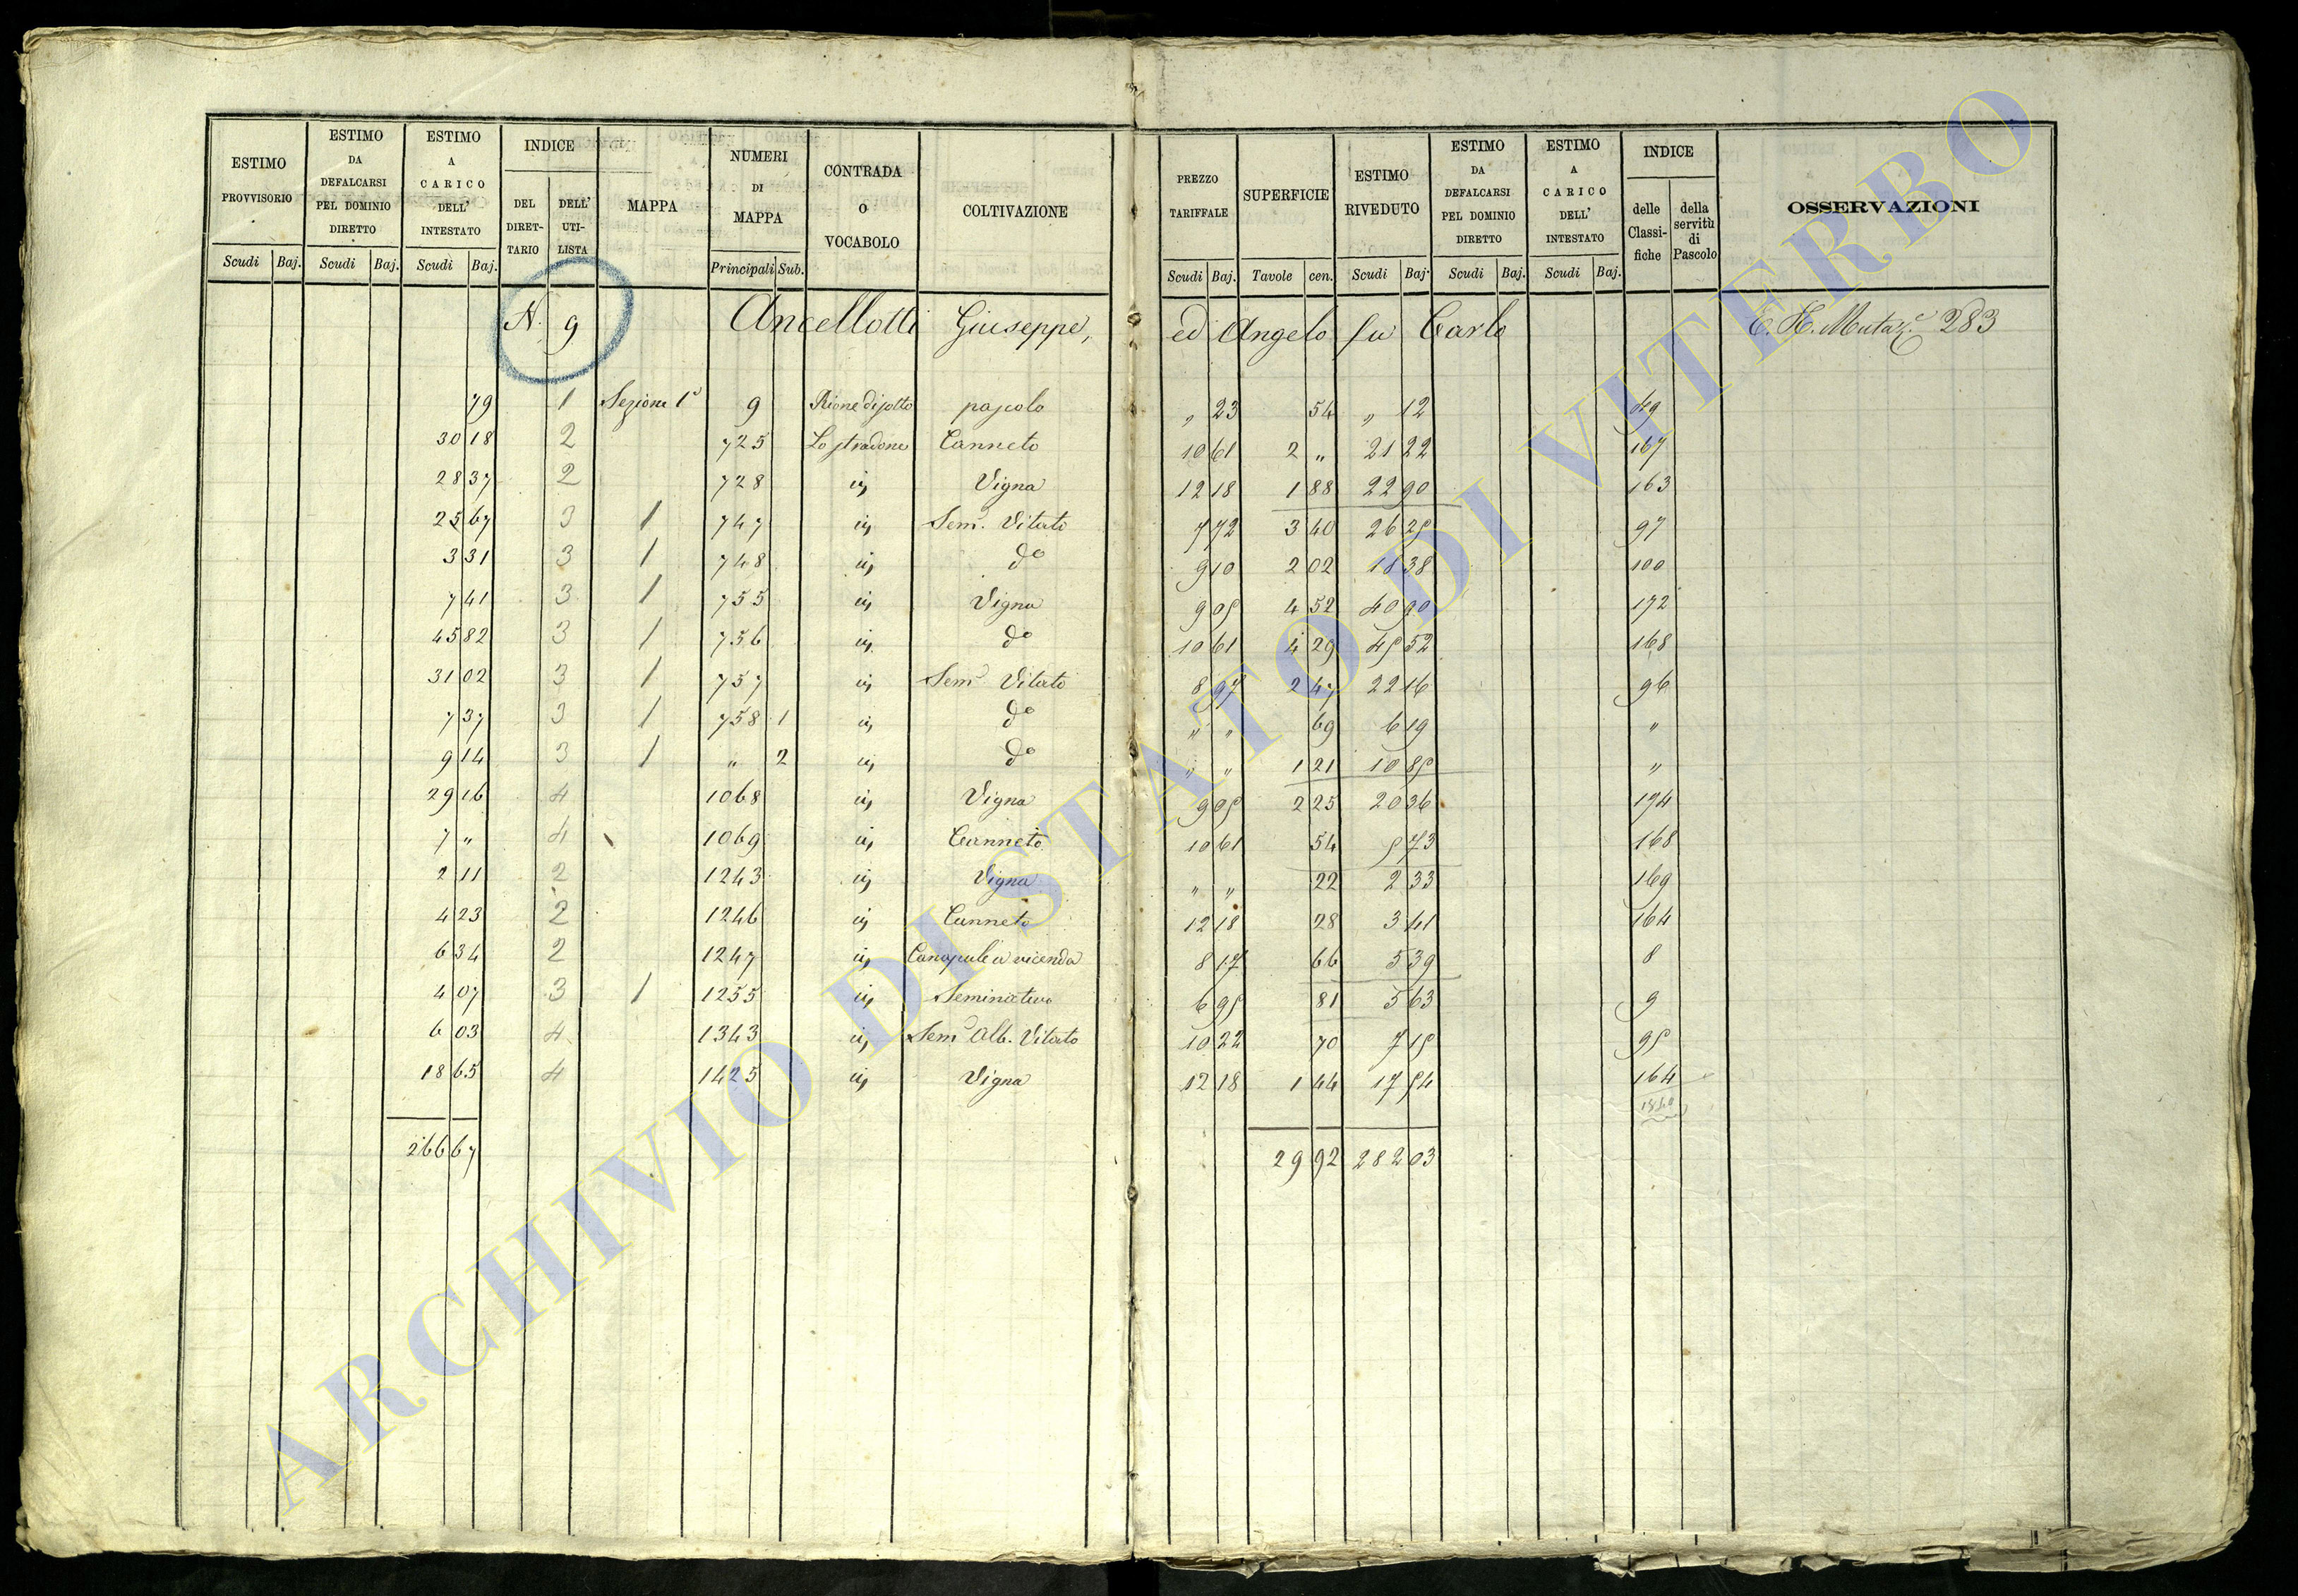 ESTIMO PROVVISORIO Scudi Baj.
ESTIMO DA DEFALCARSI PEL DOMINIO DIRETTO Scudi Baj.
ESTIMO A CARICO DELL' INTESTATO Scudi Baj.
INDICE DEL DIRET-TARIO DELL' UTI-LISTA
MAPPA
NUMERI DI MAPPA Principali Sub.
CONTRADA O VOCABOLO
COLTIVAZIONE
PREZZO TARIFFALE Scudi Baj.
SUPERFICIE Tavole cen.
ESTIMO RIVEDUTO Scudi Baj.
ESTIMO DA DEFALCARSI PEL DOMINIO DIRETTO Scudi Baj.
ESTIMO A CARICO DELL' INTESTATO Scudi Baj.
INDICE delle Classi-fiche della servitù di Pascolo
OSSERVAZIONI
N. 9 Ancellotti Giuseppe, ed Angelo fu Carlo 283
79 1 Sezione 1ª 9 Rione di sotto pascolo " 23 54 " 12
30 18 2 725 Lo stradone Canneto 10 61 2 " 21 22 167
28 37 2 728 iv, Vigna 12 18 1 88 22 90 163
25 67 3 1 747 iv, Sem. Vitato 7 72 3 40 26 25 97
3 31 3 1 748 iv, do 9 10 2 02 18 38 100
7 41 3 1 755 iv, Vigna 9 05 4 52 40 90 172
45 82 3 1 756 iv, do 10 61 4 29 45 52 168
31 02 3 1 757 iv, Sem Vitato 8 97 2 47 22 16 96
7 37 3 1 758 1 iv, do " " 69 6 19 "
9 14 3 1 " 2 iv, do " " 1 21 10 85 "
29 16 4 1068 iv, Vigna 9 05 2 25 20 36 174
7 " 4 1069 iv, Canneto 10 61 54 5 73 168
2 11 2 1243 iv, Vigna " " 22 2 33 169
4 23 2 1246 iv, Canneto 12 18 28 3 41 164
6 34 2 1247 iv, Canapule a vicenda 8 17 66 5 39 8
4 07 3 1 1255 iv, Seminativo 6 95 81 5 63 9
6 03 4 1343 iv, Sem Alb. Vitato 10 22 70 7 15 95
18 65 4 1425 iv, Vigna 12 18 1 44 17 54 164
266 67 29 92 282 03
ARCHIVIO DI STATO DI VITERBO